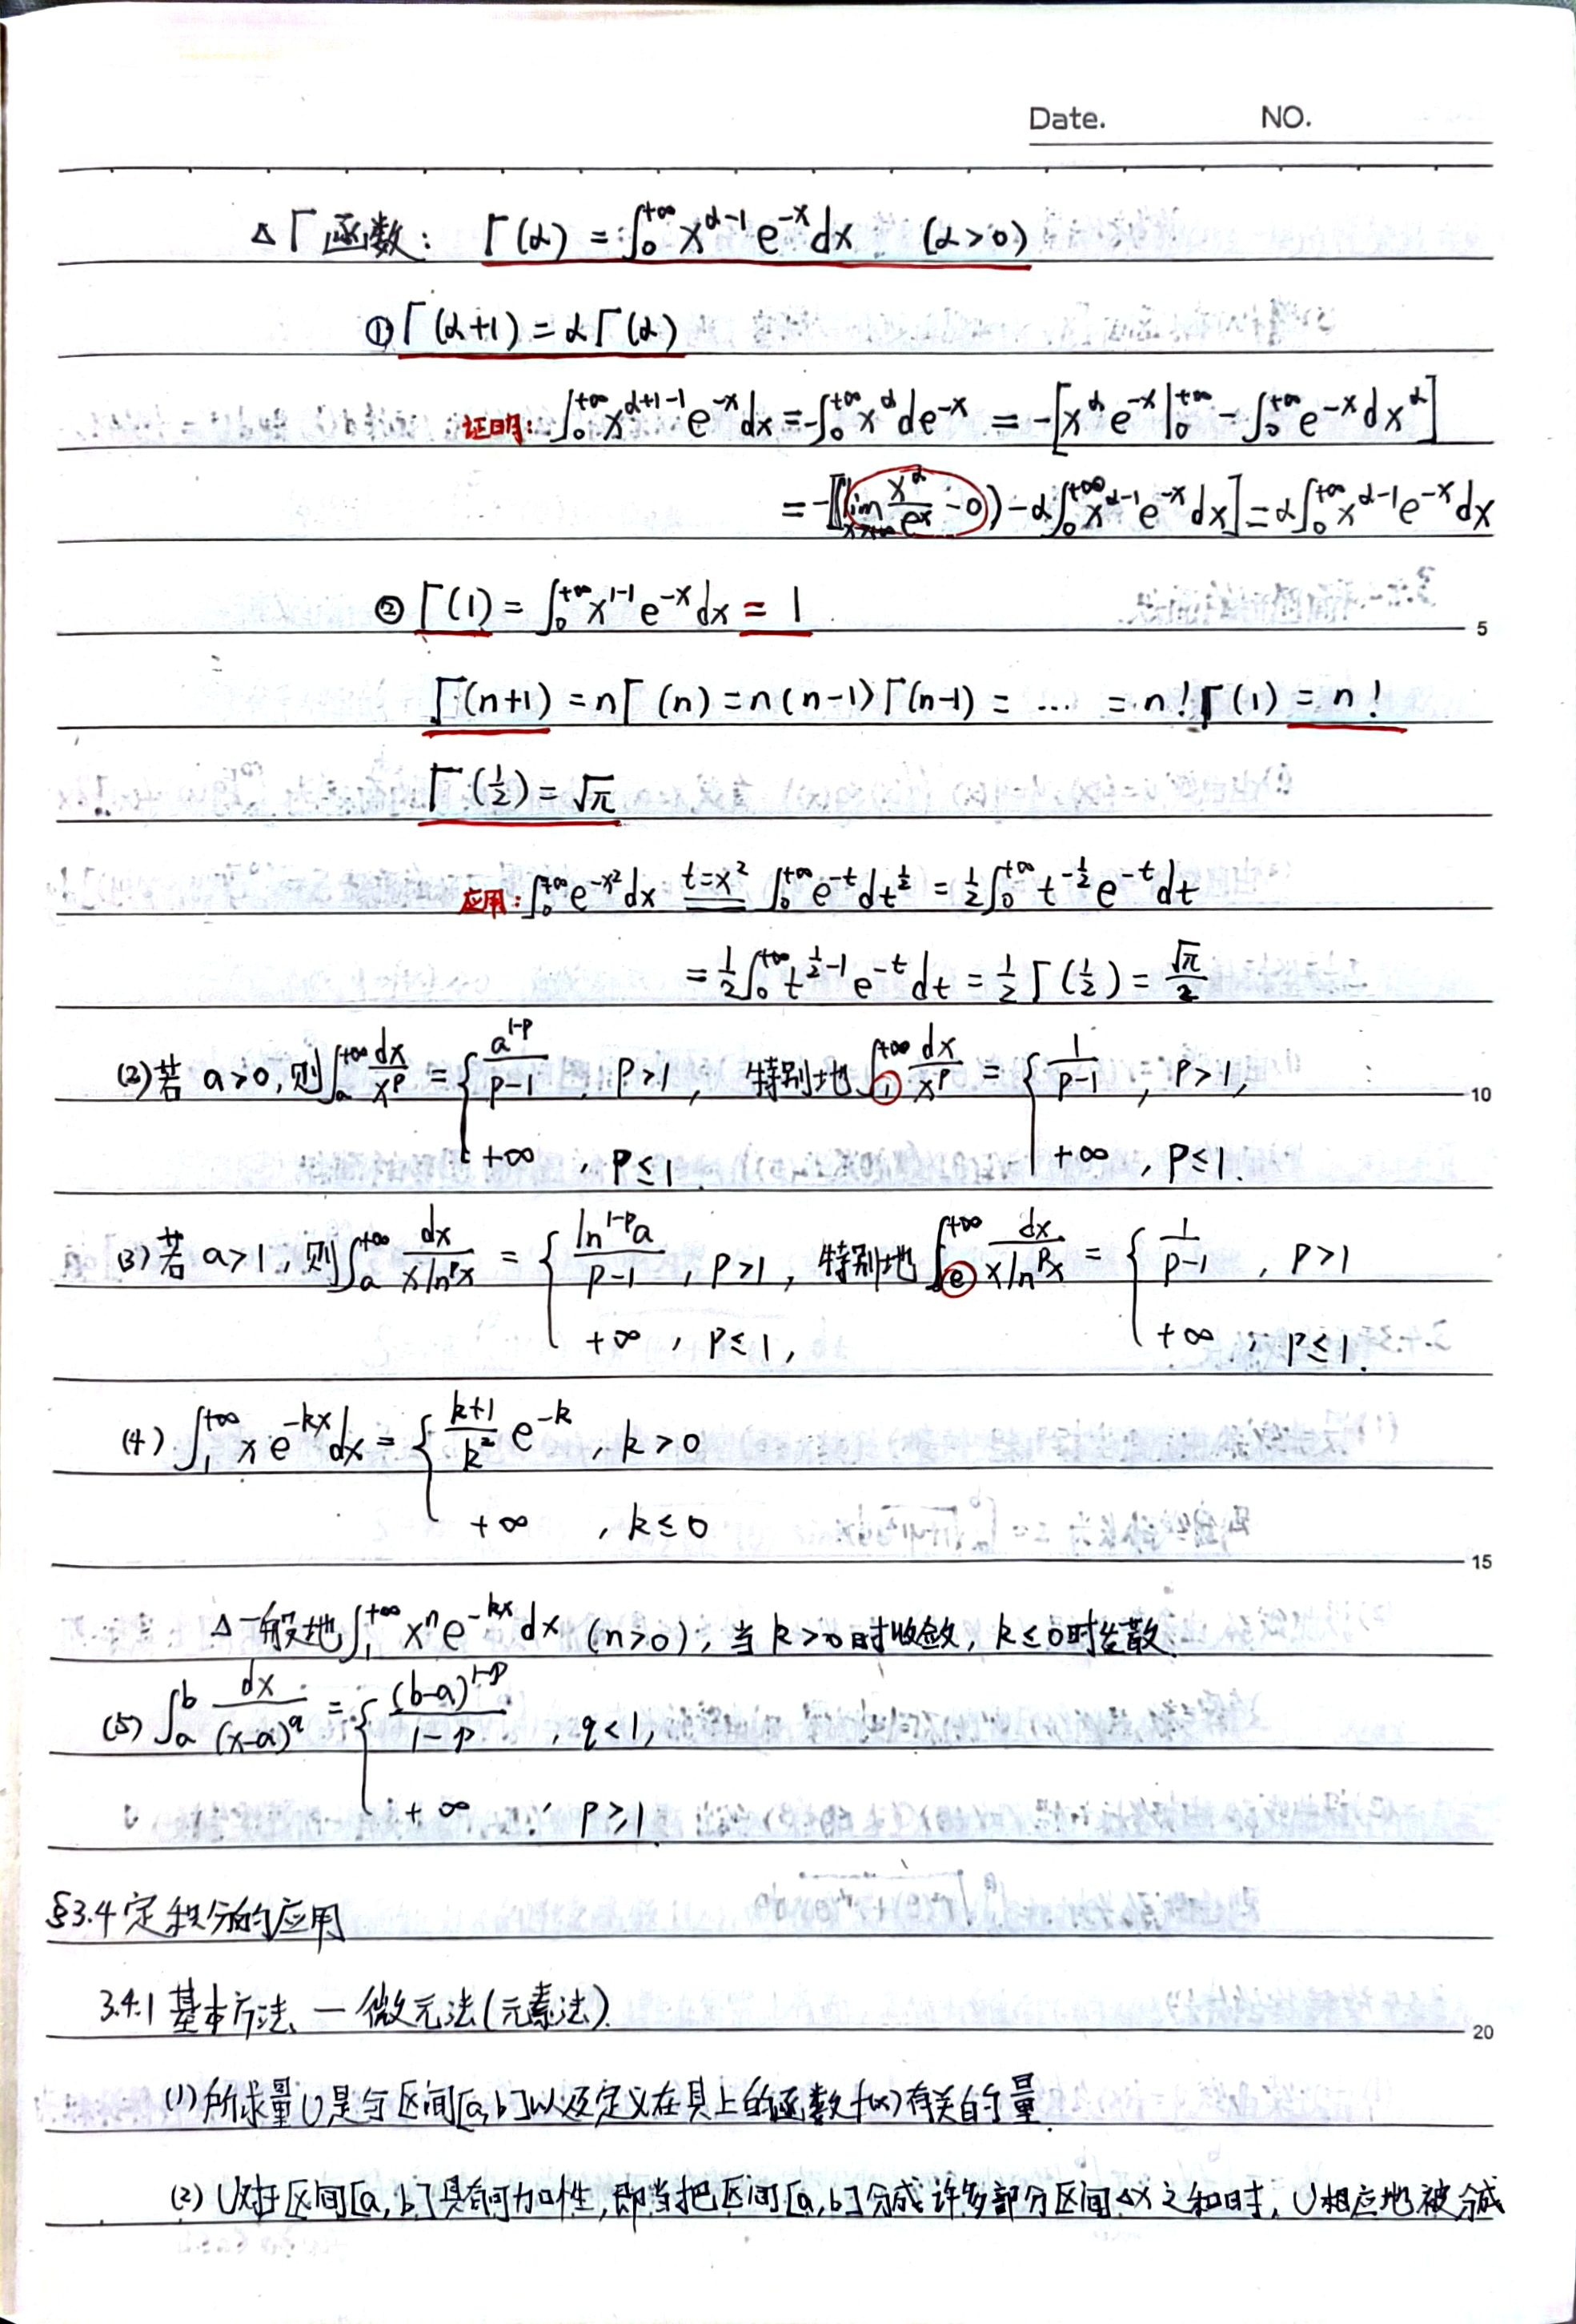 Date. NO.
△ Γ函数: Γ(α) = ∫₀^{+∞} x^{α-1} e^{-x} dx (α>0)
① Γ(α+1) = αΓ(α)
证明: ∫₀^{+∞} x^{α+1-1} e^{-x} dx = -∫₀^{+∞} x^α de^{-x} = -[x^α e^{-x}|₀^{+∞} - ∫₀^{+∞} e^{-x} dx^α]
= -[(lim_{x→+∞} x^α/e^x - 0) - α∫₀^{+∞} x^{α-1} e^{-x} dx] = α∫₀^{+∞} x^{α-1} e^{-x} dx
② Γ(1) = ∫₀^{+∞} x^{1-1} e^{-x} dx = 1
5
Γ(n+1) = nΓ(n) = n(n-1)Γ(n-1) = ... = n!Γ(1) = n!
Γ(1/2) = √π
应用: ∫₀^{+∞} e^{-x²} dx =(t=x²)= ∫₀^{+∞} e^{-t} dt^{1/2} = 1/2 ∫₀^{+∞} t^{-1/2} e^{-t} dt
= 1/2 ∫₀^{+∞} t^{1/2-1} e^{-t} dt = 1/2 Γ(1/2) = √π/2
(2) 若 a>0, 则 ∫_a^{+∞} dx/x^p = { a^{1-p}/(p-1), p>1, 特别地 ∫_1^{+∞} dx/x^p = { 1/(p-1), p>1,
10
+∞, p≤1. +∞, p≤1.
(3) 若 a>1, 则 ∫_a^{+∞} dx/(x ln^p x) = { ln^{1-p}a/(p-1), p>1, 特别地 ∫_e^{+∞} dx/(x ln^p x) = { 1/(p-1), p>1
+∞, p≤1, +∞, p≤1.
(4) ∫_1^{+∞} x e^{-kx} dx = { (k+1)/k² e^{-k}, k>0
+∞, k≤0
15
△一般地 ∫_1^{+∞} x^n e^{-kx} dx (n>0), 当 k>0时收敛, k≤0时发散.
(5) ∫_a^b dx/(x-a)^q = { (b-a)^{1-p}/(1-p), q<1,
+∞, p≥1.
§3.4 定积分的应用
3.4.1 基本方法 — 微元法(元素法).
20
(1) 所求量U是与区间[a,b]以及定义在其上的函数f(x)有关的量.
(2) U对于区间[a,b]具有可加性,即当把区间[a,b]分成许多部分区间△x之和时, U相应地被分成